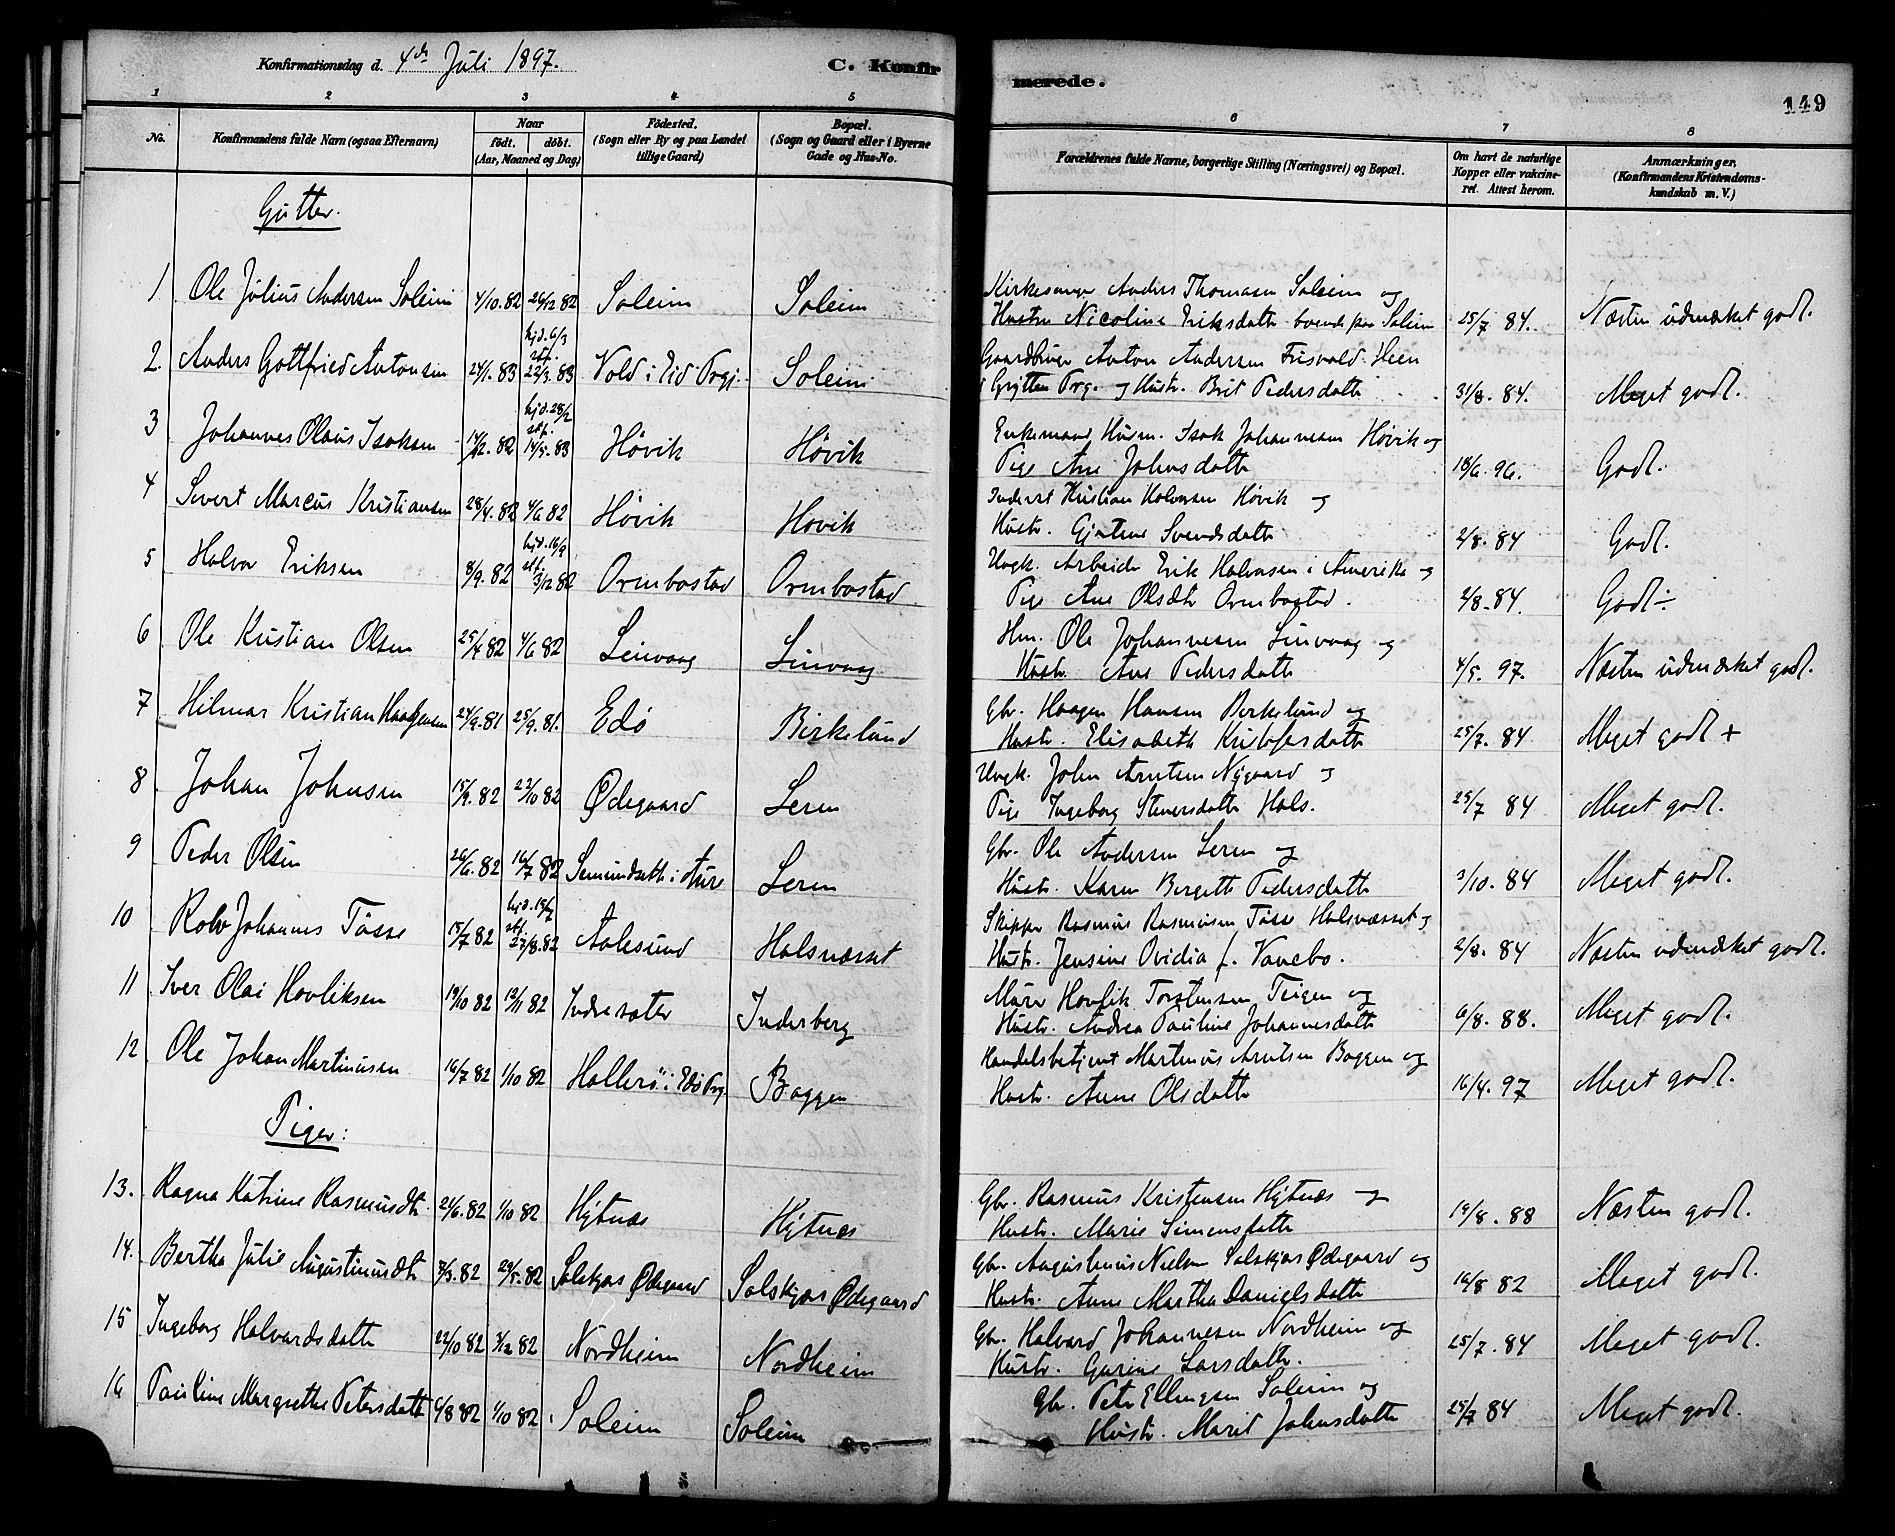 Konfirmationsdag d. 4de Juli 1897.
C. Konfirmerede.
149
1 2 3 4 5 6 7 8
No. Konfirmandens fulde Navn (ogsaa Efternavn) Naar født. døbt. (Aar, Maaned og Dag) Fødested. (Sogn eller By og paa Landet tillige Gaard) Bopæl. (Sogn og Gaard eller i Byerne Gade og Hus-No. Forældrenes fulde Navne, borgerlige Stilling (Næringsvei) og Bopæl. Om havt de naturlige Kopper eller vakcineret. Attest herom. Anmærkninger. (Konfirmandens Kristendomskundskab m. V.)
Gutter.
1 Ole Julius Andersen Soleim 4/10.82 26/12 82 Soleim Soleim Kirkesanger Anders Thomasen Soleim og
Hustru Nicoline Eriksdatter boende paa Soleim 25/7 84. Næsten udmærket godt.
2. Anders Gottfried Antonsen 24/1.83 hjd. 6/3 stf. 22/3.83 Vold i Eid Prgj. Soleim Gaardbruger Anton Andersen Frisvold. Heen
i Grytten Prg. og Hustr. Brit Pedersdatter 31/8.84. Meget godt.
3 Johannes Olaus Isaksen 14/12.82 hjd. 28/2 stf. 14/5.83 Høvik Høvik Enkemand Husm. Isak Johannesen Høvik og
Pige Ane Johnsdatter 18/6.96. Godt.
4 Sivert Marcus Kristiansen 28/4.82 4/6 82 Høvik Høvik Inderst Kristian Halvorsen Høvik og
Hustr. Gjertine Svendsdatter 2/8.84 Godt.
5 Halvor Eriksen 8/9.82 hjd. 16/9 stf. 3/12 82 Ormbostad Ormbostad Ungk. Arbeider Erik Halvorsen i Amerika og
Pige Ane Olsdtr Ormbostad. 2/8.84. Godt ÷
6 Ole Kristian Olsen 25/4 82 4/6 82 Leirvaag Leirvaag Hm. Ole Johannesen Leirvaag og
Hustr. Ane Pedersdatter 4/5. 97. Næsten udmærket godt.
7 Hilmar Kristian Haagensen 24/9.81 25/9.81. Edø Birkelund Gbr. Haagen Hansen Birkelund og
Hustr. Elisabeth Kristofersdatter 25/7.84 Meget godt +
8 Johan Johnsen 15/9.82 22/10 82 Ødegaard Leren Ungk. John Arntsen Nygaard og
Pige Ingeborg Steversdatter Hals. 25/7 84 Meget godt.
9 Peder Olsen 26/6.82 16/7 82 Semundsett i Aure Leren Gbr. Ole Andersen Leren og
Hustr. Karen Bergette Pedersdatter 3/10.84 Meget godt.
10 Rolv Johannes Tøsse 15/7 82 hjd. 15/7 stf. 27/8.82 Aalesund Halsnæsset Skipper Rasmus Rasmusen Tøsse Halsnæsset og
Hustr. Jensine Ovidia f. Vanebo. 2/8.84 Næsten udmærket godt.
11 Iver Olai Havliksen 19/10 82 12/11 82 Indresæter Inderberg Murer Havlik Torstensen Teigen og
Hustr. Andrea Pauline Johannesdatter 6/8. 88. Meget godt.
12 Ole Johan Martinusen 16/7 82 1/10 82 Hallerø i Edø Prg. Boggen Handelsbetjent Martinus Arntsen Boggen og
Hustr. Anne Olsdatter 16/4.97 Meget godt.
Piger:
13. Ragna Katrine Rasmusdtr. 21/6.82 1/10 82 Hjtnæs Hjtnæs Gbr. Rasmus Kristensen Hjtnæs og
Hustr. Marie Simonsdatter 19/8.88 Næsten godt.
14. Bertha Julie Augustinusdtr. 8/3.82 29/5.82 Solskjæs Ødegaard Solskjæs Ødegaard Gbr. Augustinus Nielsen Solskjæs Ødegaard og
Hustr. Anne Martha Danielsdatter 16/8 82 Meget godt.
15 Ingeborg Halvardsdatter 22/10 82 3/12 82 Nordheim Nordheim Gbr. Halvard Johannesen Nordheim og
Hustr. Gurine Larsdatter. 25/7.84 Meget godt.
16 Pauline Margrethe Petersdatter 6/8 82 1/10 82 Soleim Soleim Gbr. Peter Ellingsen Soleim og
Hustr. Marit Johnsdatter 25/7 84 Meget godt.